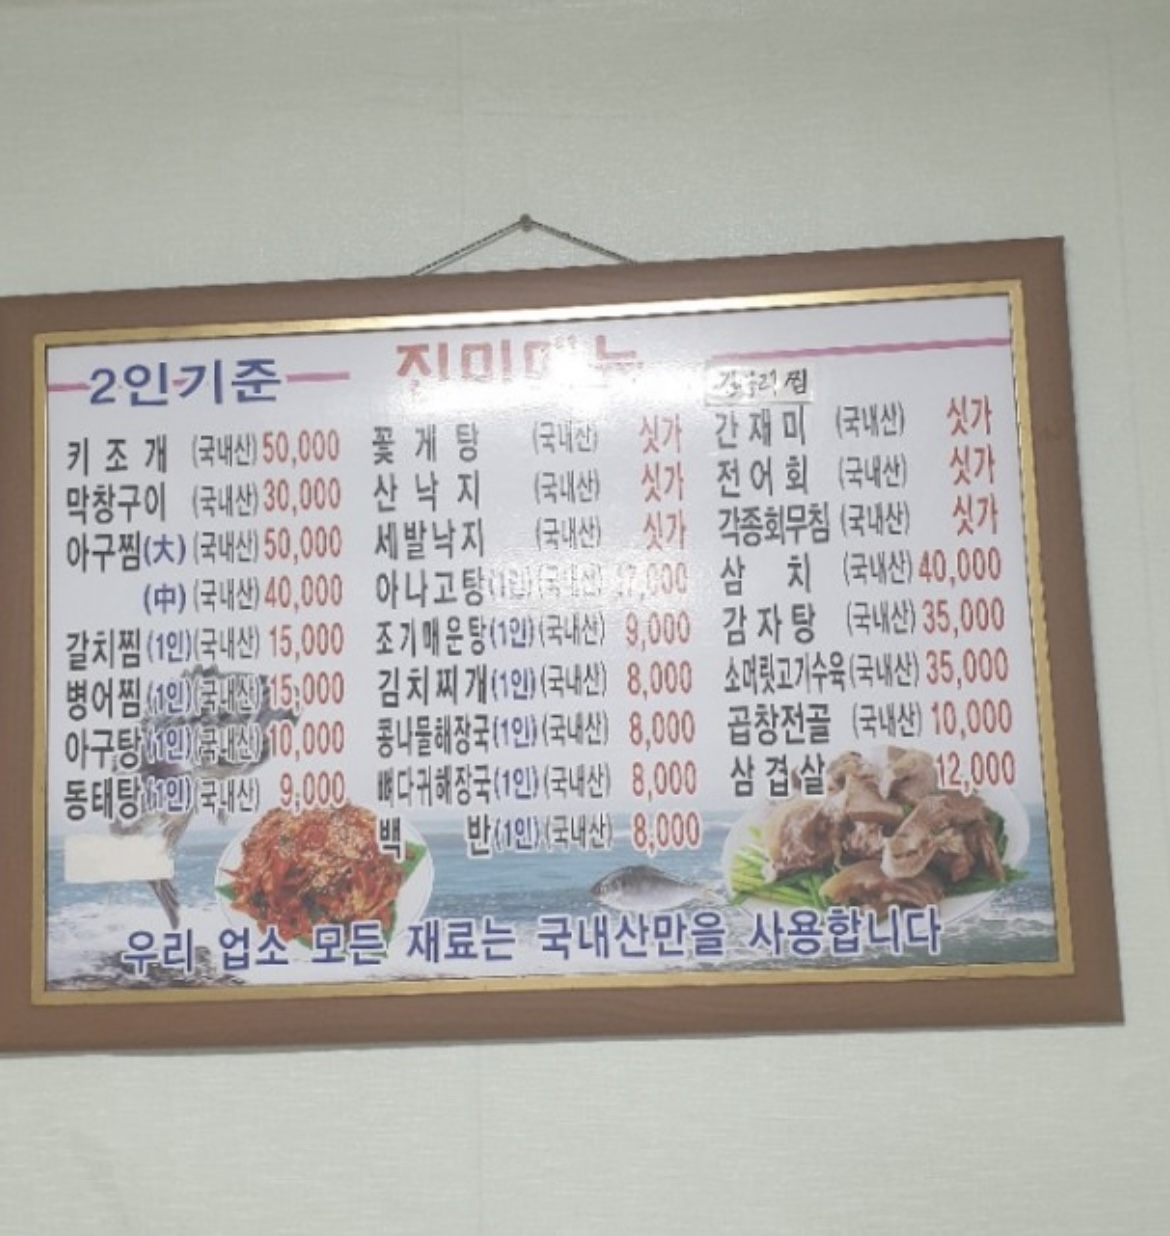 2인기준
진미메뉴
키조개 (국내산) 50,000
막창구이 (국내산) 30,000
아구찜(大) (국내산) 50,000
(中) (국내산) 40,000
갈치찜(1인)(국내산) 15,000
병어찜(1인)(국내산) 15,000
아구탕(1인)(국내산) 10,000
동태탕(1인)(국내산) 9,000
꽃게탕 (국내산) 싯가
산낙지 (국내산) 싯가
세발낙지 (국내산) 싯가
아나고탕(1인)(국내산)
조기매운탕(1인)(국내산) 9,000
김치찌개(1인)(국내산) 8,000
콩나물해장국(1인)(국내산) 8,000
뼈다귀해장국(1인)(국내산) 8,000
백반(1인)(국내산) 8,000
간재미 (국내산) 싯가
전어회 (국내산) 싯가
각종회무침 (국내산) 싯가
삼치 (국내산) 40,000
감자탕 (국내산) 35,000
소머릿고기수육(국내산) 35,000
곱창전골 (국내산) 10,000
삼겹살 12,000
우리 업소 모든 재료는 국내산만을 사용합니다